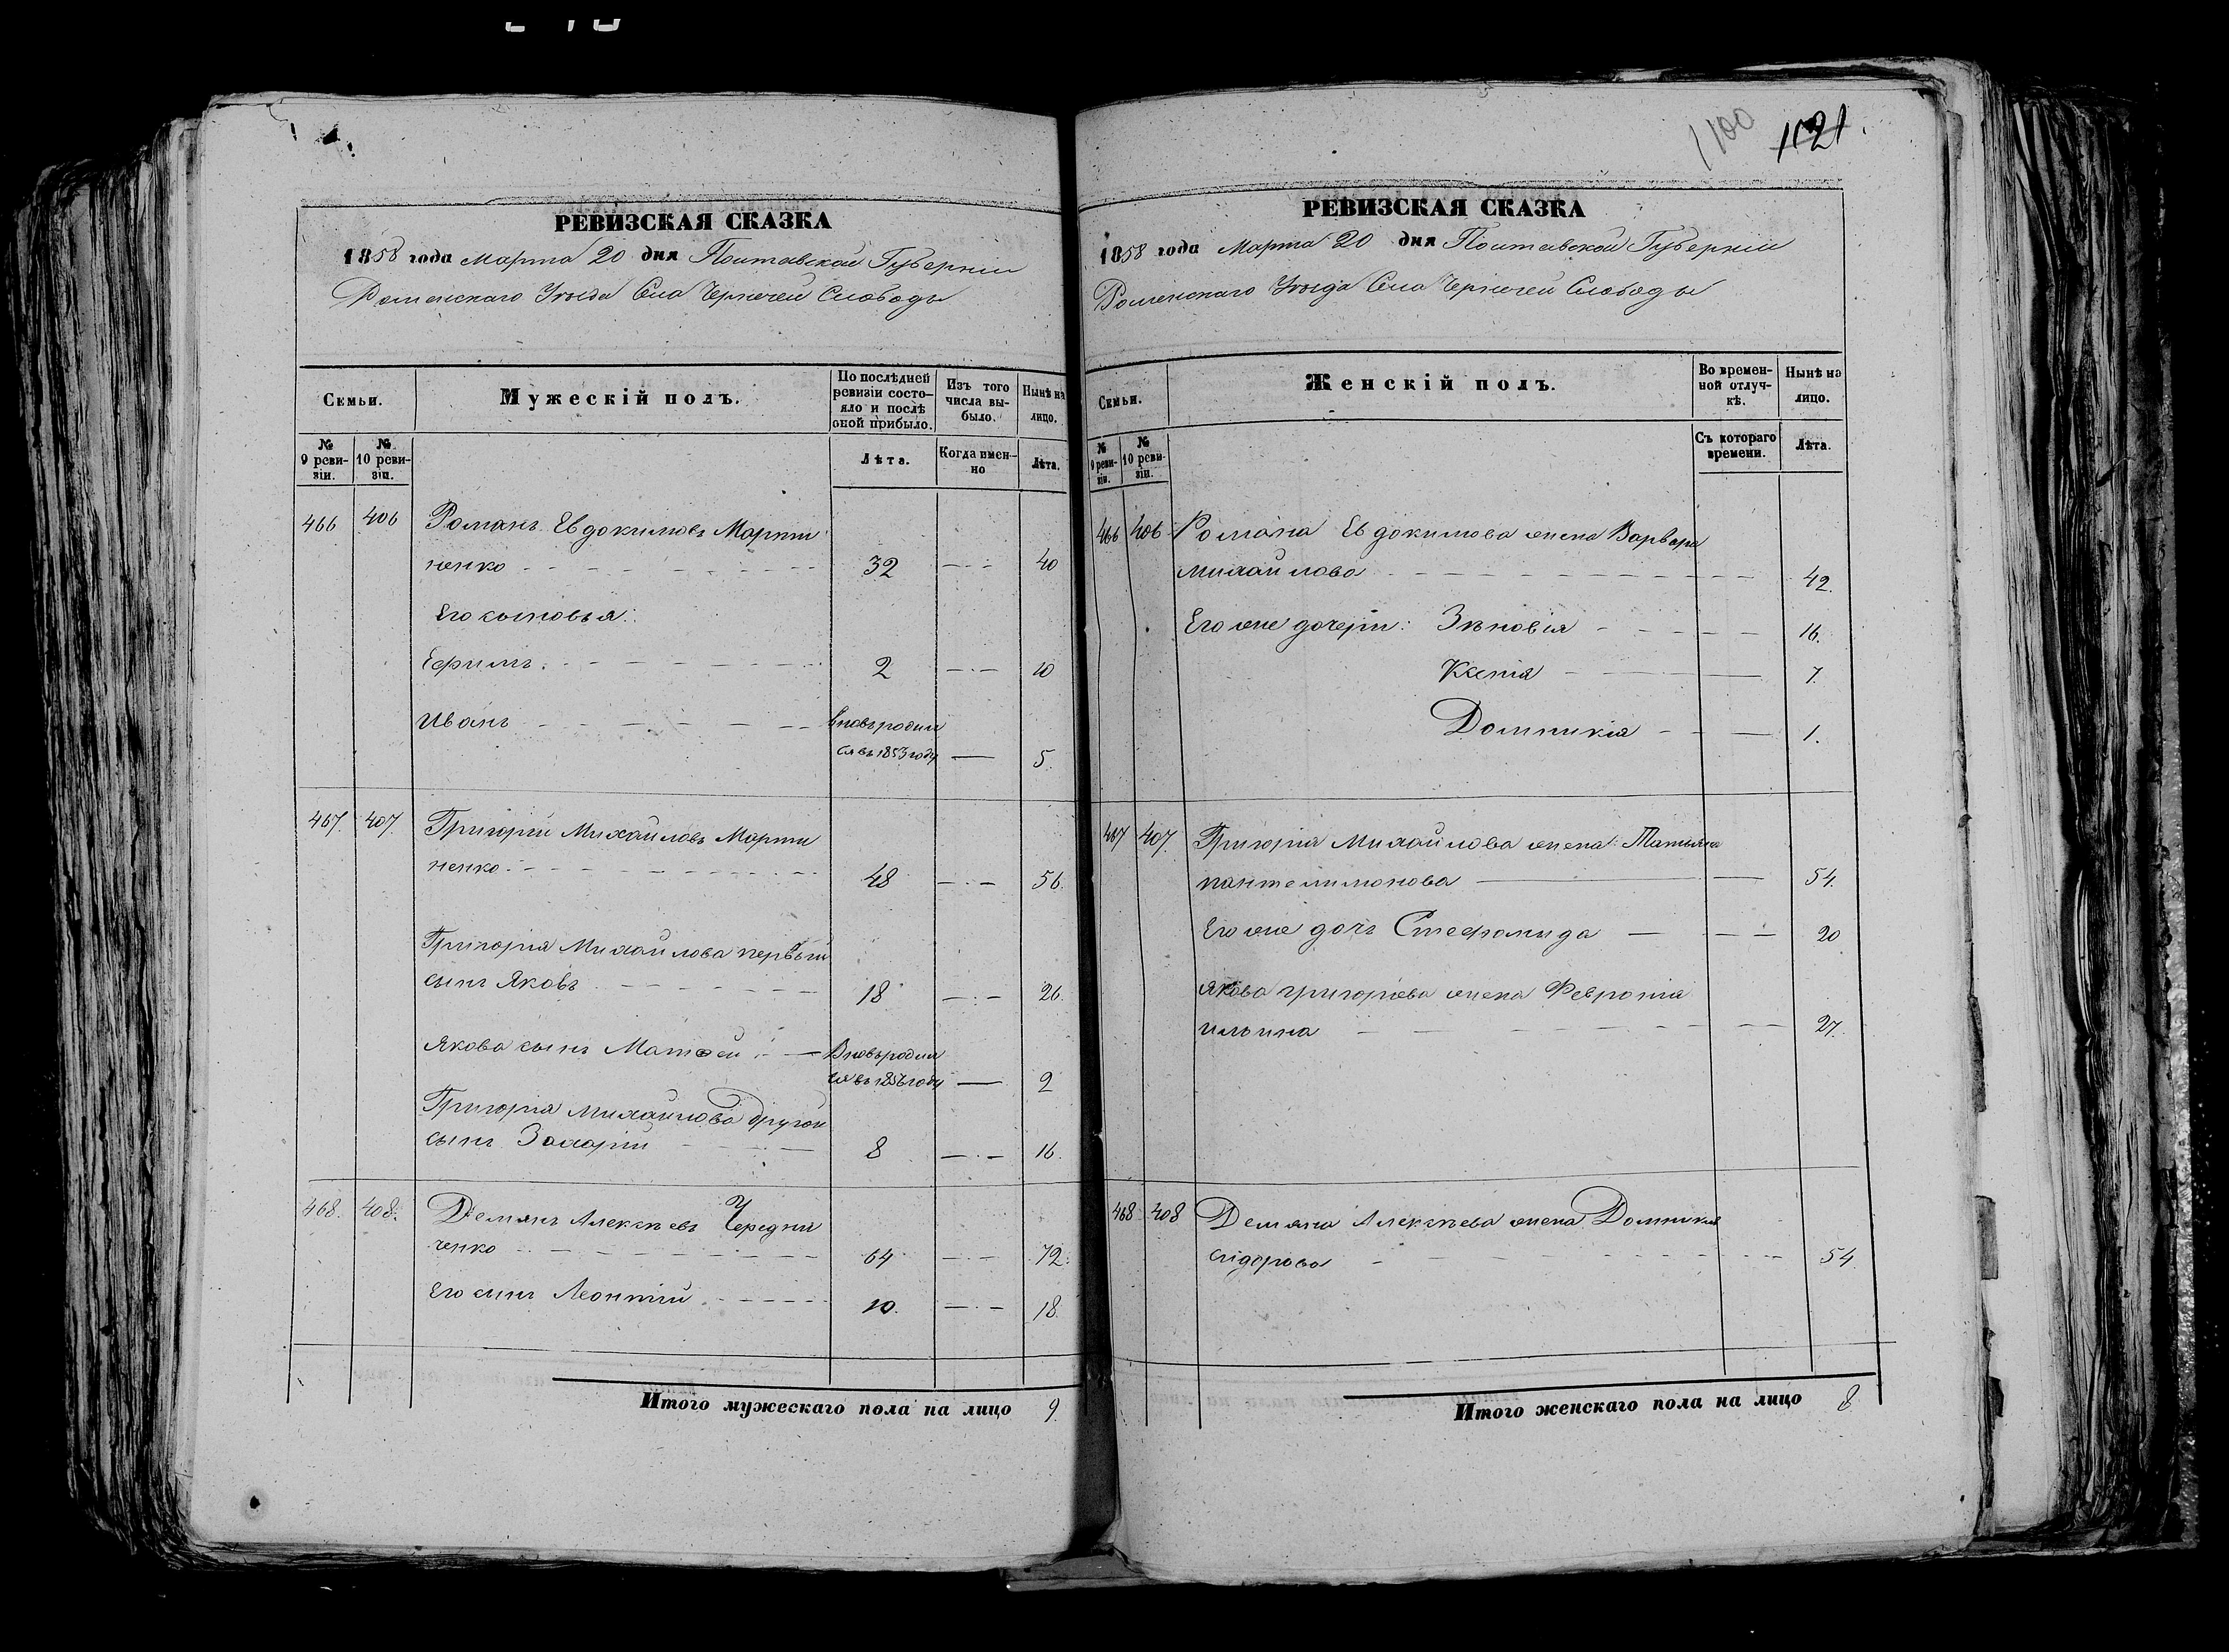 1100 1121
РЕВИЗСКАЯ СКАЗКА
1858 года Марта 20 дня Полтавской Губерніи
Роменскаго Уѣзда Села Чернечей Слободы
Семьи.
Мужескій полъ.
По послѣдней ревизіи состо-
яло и послѣ
оной прибыло.
Изъ того
числа вы-
было.
Нынѣ на
лицо.
№
9 реви-
зіи.
№
10 реви-
зіи.
Лѣта.
Когда имен-
но
Лѣта.
466 406 Романъ Евдокимовъ Марти
ненко 32 40
Его сыновья:
Ефимъ 2 10
Иванъ вновь родил
ся въ 1853 году 5
467. 407. Григорій Михайловъ Марти
ненко 48 56.
Григорія Михайлова первый
сынъ Яковъ 18 26.
Якова сынъ Матвей Вновь родил
ся въ 1856 году 2
Григорія Михайлова другой
сынъ Захарій 8 16.
468. 408. Демянъ Алексѣевъ Чередни
ченко 64 72.
Его сынъ Леонтій 10. 18.
Итого мужескаго пола на лицо 9.
РЕВИЗСКАЯ СКАЗКА
1858 года Марта 20 дня Полтавской Губерніи
Роменскаго Уѣзда Села Чернечей Слободы
Семьи.
Женскій полъ.
Во времен-
ной отлуч-
кѣ.
Нынѣ на
лицо.
№
9 реви-
зіи.
№
10 реви-
зіи.
Съ котораго
времени.
Лѣта.
466 406 Романа Евдокимова жена Варвара
Михайлова 42.
Его же дочери: Зѣновія 16.
Ксенія 7.
Домникія 1.
467 407. Григорія Михайлова жена Татьяна
Пантелимонова 54.
Его же дочь Стефанида 20
Якова Григорьева жена Февронія
Ильина 27.
468 408 Демяна Алексѣева жена Домникія
Сидорова 54
Итого женскаго пола на лицо 8